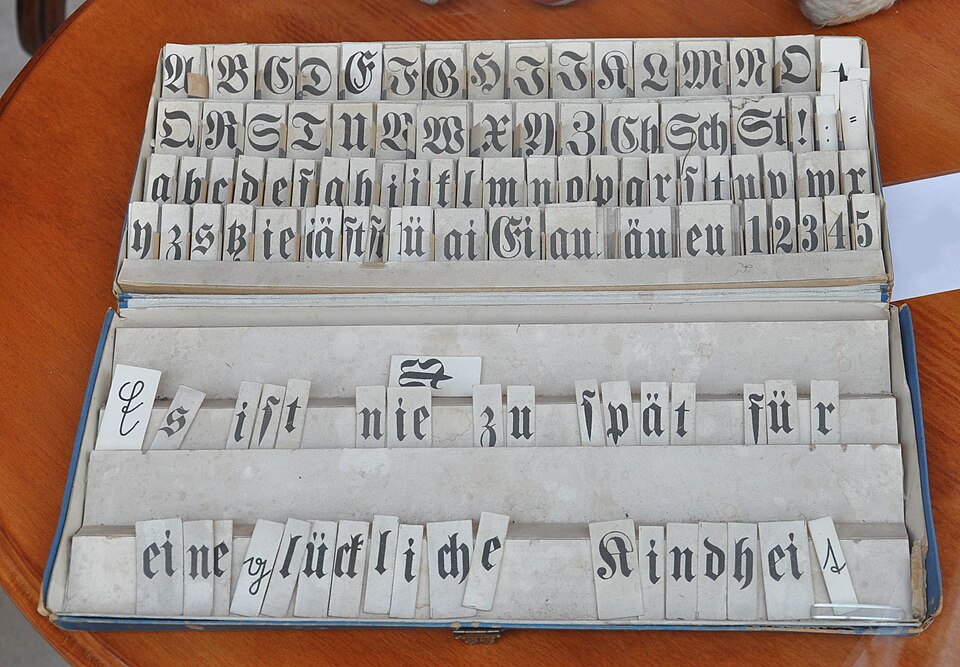 A B C D E F G H I J K L M N O
Q R S T U V W X Y Z Ch Sch St ! : =
a b c d e f g h i j k l m n o p q r ſ t u v w x
y z s tz ie iä ſt ü ai Ei au äu eu 1 2 3 4 5
St
Es iſt nie zu ſpät für
eine glückliche Kindheit